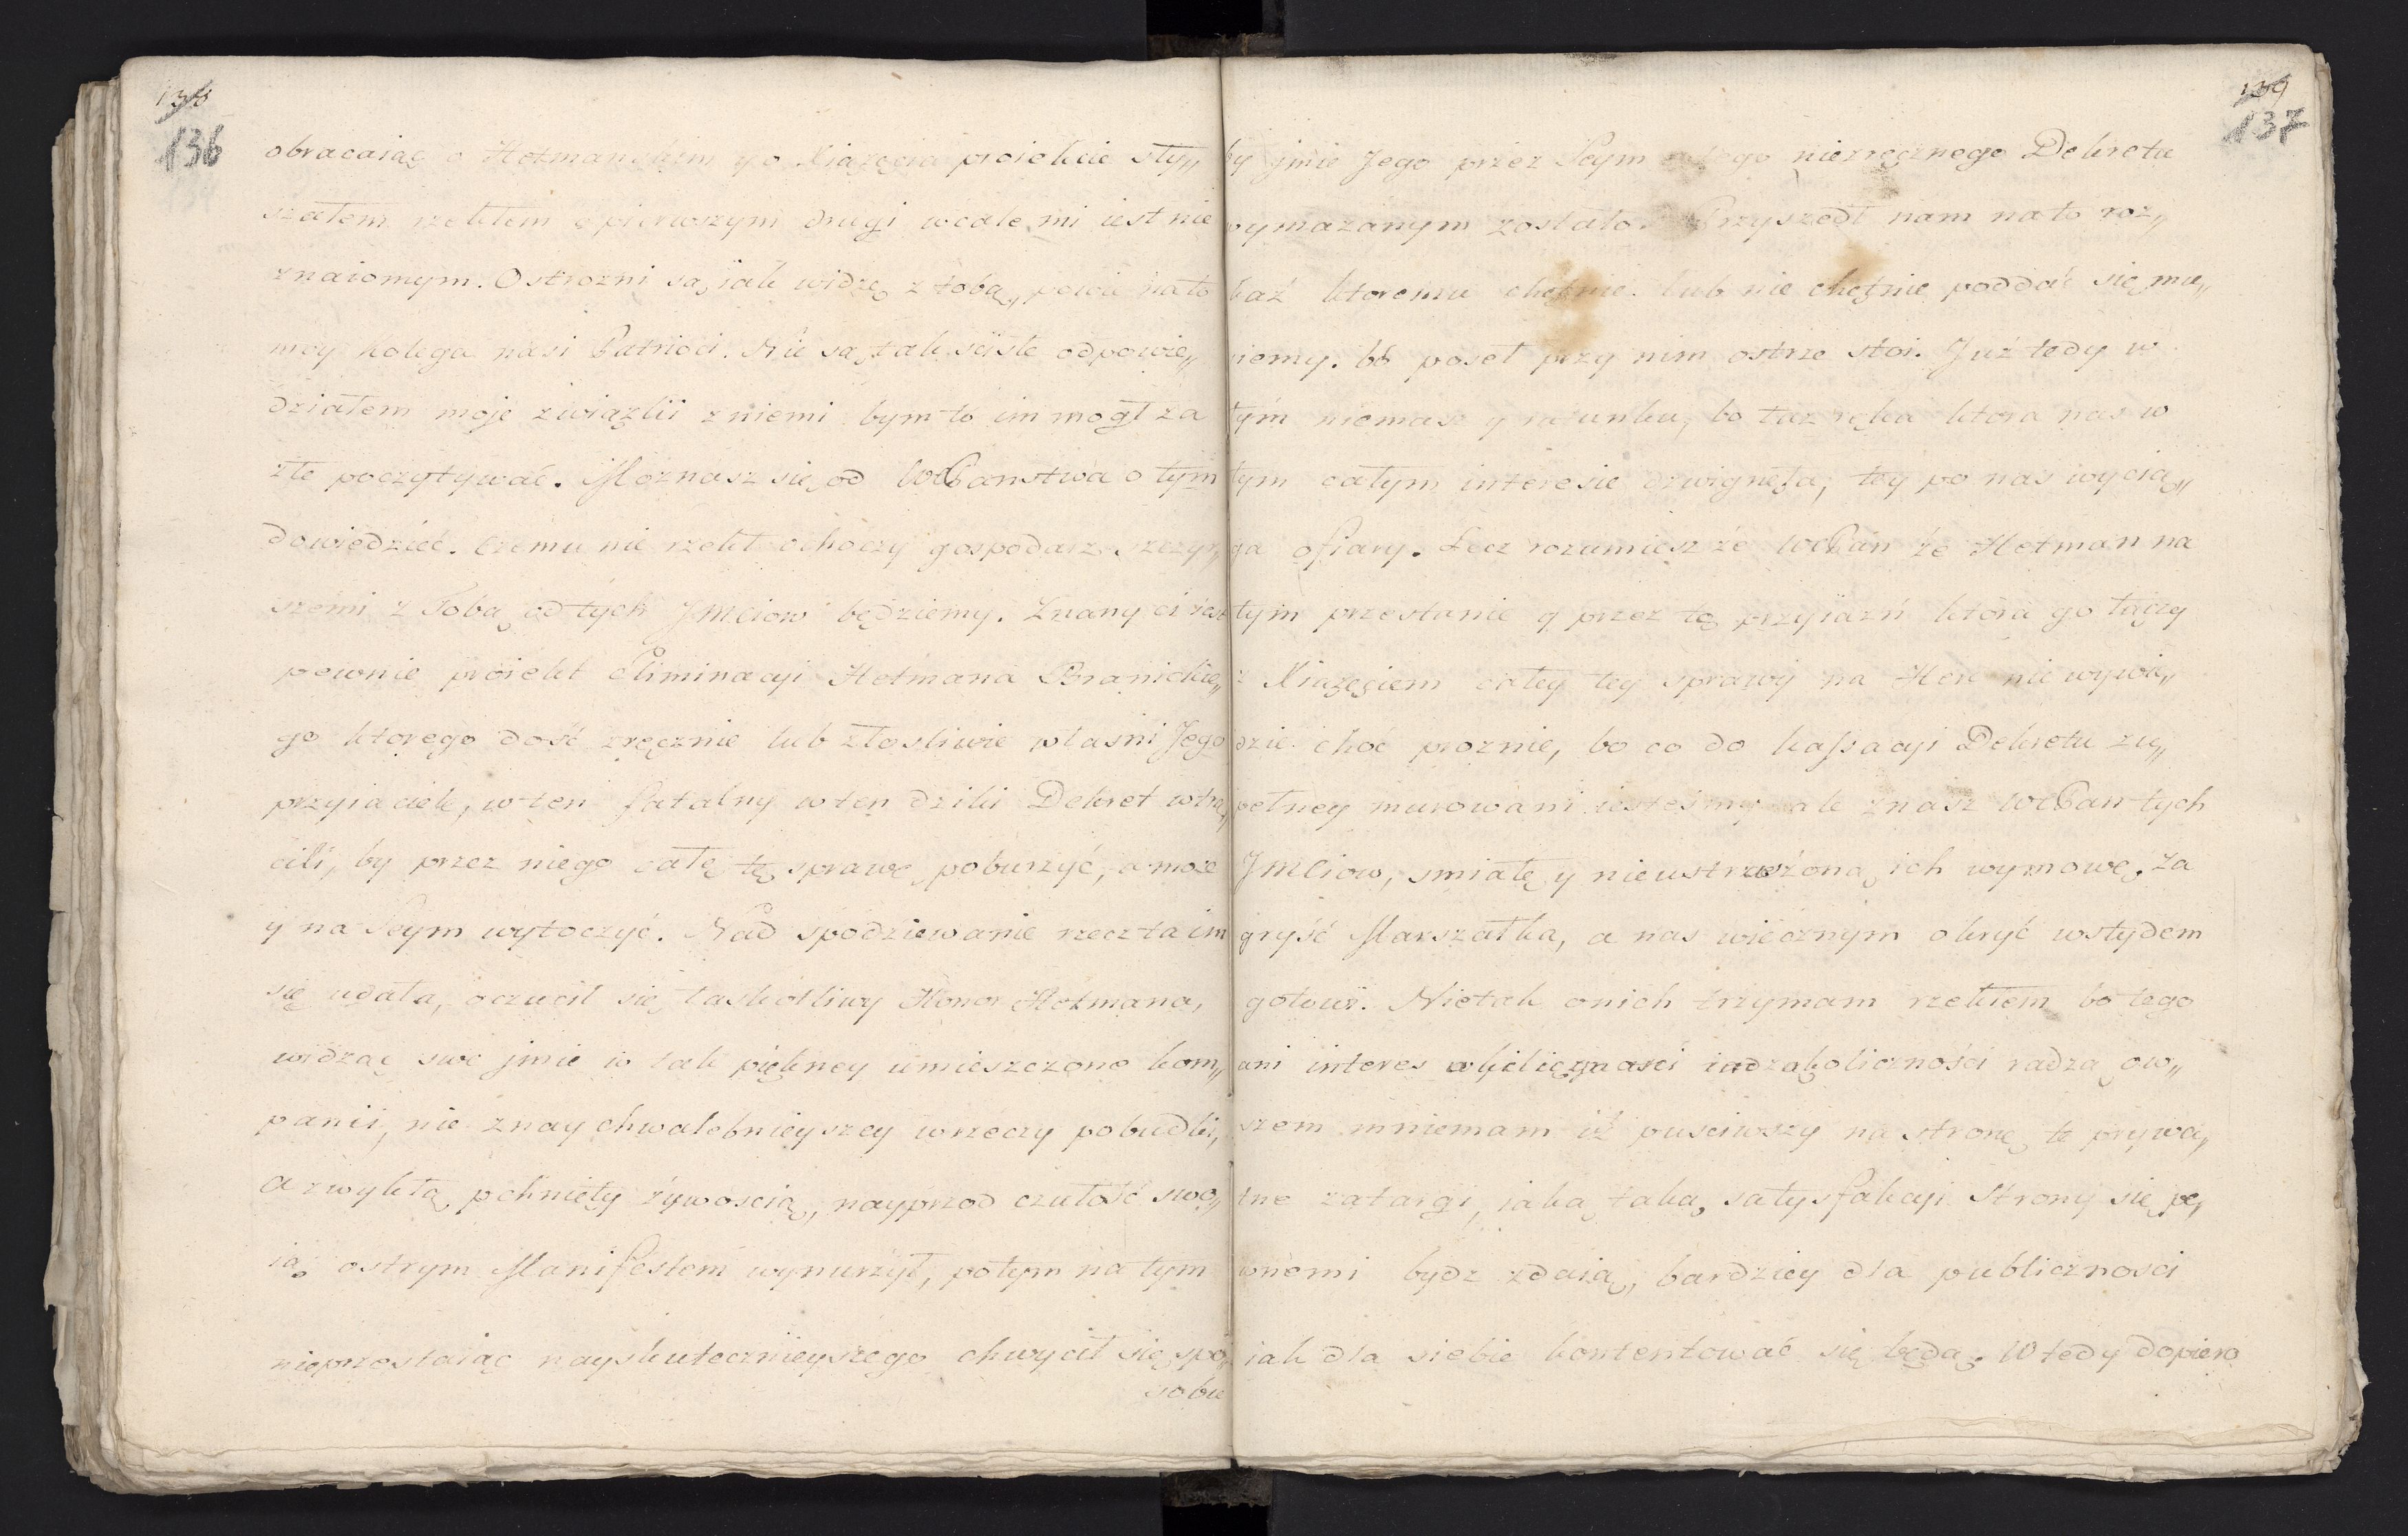 138
136
obracaiąc o Hetmanskim y o Xiążęcia proiekcie sły„
szałem rzekłem o pierwszym drugi wcale mi iest nie
znaiomym. Ostrożni są iak widzę z tobą„ powie nato
moy kolega nasi Patrioci. Nie są tak scisłe odpowie„
działem moje związkii zniemi bym to im mogł za
złe poczytywać. Możnasz się od WcPanstwa o tym
dowiedzieć. Czemu nie rzekł ochoczy gospodarz szczyr„
szemi z Tobą od tych JMciow będziemy. Znany ci iest
pewnie proiekt eliminacyi Hetmana Branickie„
go ktorego dość zręcznie lub złosliwie własni Jego
przyiaciele, w ten fatalny w ten dziki Dekret wtrą„
cili, by przez niego całę tę sprawę poburzyć, a może
y na Seym wytoczyć. Nad spodziewanie rzecz ta im
się udała, oczucił się łaskotliwy Honor Hetmana,
widząc swe jmie w tak piękney umieszczone kom„
panii, nie znay chwalebnieyszey wrzeczy pobudki,
a zwykłą pchnięty żywoscią, nayprzod czułość swo„
ią ostrym Manifestem wynurzył, potym na tym
nieprzestaiąc nayskutecznieyszego chwycił się spo„
sobu
139
137
by jmie Jego przez Seym z tego niezręcznego Dekretu
wymazanym zostało. Przyszedł nam na to roz„
kaz ktoremu chętnie lub nie chętnie poddać się mu„
siemy. bb poseł przy nim ostrze stoi. Już tedy w
tym niemasz y ratunku, bo taz ręka ktora nas w
tym całym interesie dzwignęła, tey po nas wycią„
ga ofiary. Lecz rozumiesz że WcPan że Hetman na
tym przestanie y przez tę przyiazń ktora go łączy
z Xiążęciem całey tey sprawy na Here nie wywie„
dzie choć proznie, bo co do kassacyi Dekretu zu„
pełney murowani iesteśmy ale znasz WcPan tych
JMCiow, smiałę y nieustraszoną ich wymowę. Za
gryść Marszałka, a nas wiecznym okryć wstydem
gotowi. Nietak onich trzymam rzekłem bo tego
ani interes ani okolicznosci radzą ow„
szem mniemam iż pusciwszy na stronę te prywa„
tne zatargi, iaką taką satysfakcyi Strony się pe„
wnemi bydz zdaią, bardziey dla publicznosci
iak dla siebie kontentować się będą. Wtedy dopiero